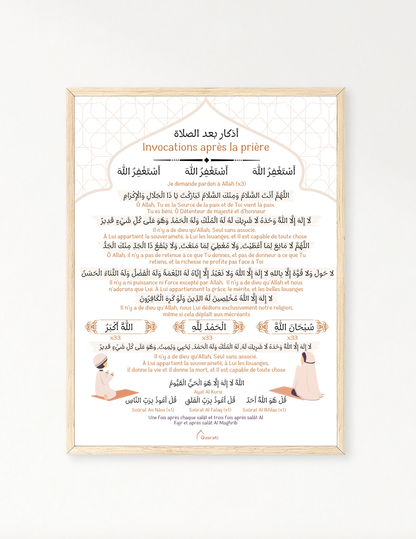 أذكار بعد الصلاة
Invocations après la prière
أَسْتَغْفِرُ اللَّهَ أَسْتَغْفِرُ اللَّهَ أَسْتَغْفِرُ اللَّهَ
Je demande pardon à Allah (x3)
اللَّهُمَّ أَنْتَ السَّلَامُ وَمِنْكَ السَّلَامُ تَبَارَكْتَ يَا ذَا الْجَلَالِ وَالْإِكْرَامِ
Ô Allah, Tu es la Source de la paix et de Toi vient la paix.
Tu es béni, Ô Détenteur de majesté et d'honneur
لَا إِلَهَ إِلَّا اللَّهُ وَحْدَهُ لَا شَرِيكَ لَهُ لَهُ الْمُلْكُ وَلَهُ الْحَمْدُ وَهُوَ عَلَى كُلِّ شَيْءٍ قَدِيرٌ
Il n'y a de dieu qu'Allah, Seul sans associé.
À Lui appartient la souveraineté, à Lui les louanges, et Il est capable de toute chose
اللَّهُمَّ لَا مَانِعَ لِمَا أَعْطَيْتَ، وَلَا مُعْطِيَ لِمَا مَنَعْتَ، وَلَا يَنْفَعُ ذَا الْجَدِّ مِنْكَ الْجَدُّ
Ô Allah, il n'y a pas de retenue à ce que Tu donnes, et pas de donneur à ce que Tu
retiens, et la richesse ne profite pas face à Toi
لَا حَوْلَ وَلَا قُوَّةَ إِلَّا بِاللهِ لَا إِلَهَ إِلَّا اللَّهُ وَلَا نَعْبُدُ إِلَّا إِيَّاهُ لَهُ النِّعْمَةُ وَلَهُ الْفَضْلُ وَلَهُ الثَّنَاءُ الْحَسَنُ
Il n'y a ni puissance ni force excepté par Allah. Il n'y a de dieu qu'Allah et nous
n'adorons que Lui. À Lui appartiennent la grâce, le mérite, et les belles louanges
لَا إِلَهَ إِلَّا اللَّهُ مُخْلِصِينَ لَهُ الدِّينَ وَلَوْ كَرِهَ الْكَافِرُونَ
Il n'y a de dieu qu'Allah, nous Lui dédions exclusivement notre religion,
même si cela déplaît aux mécréants
سُبْحَانَ اللَّهِ الْحَمْدُ لِلَّهِ اللَّهُ أَكْبَرُ
x33 x33 x33
لَا إِلَهَ إِلَّا اللَّهُ وَحْدَهُ لَا شَرِيكَ لَهُ، لَهُ الْمُلْكُ وَلَهُ الْحَمْدُ، يُحْيِي وَيُمِيتُ، وَهُوَ عَلَى كُلِّ شَيْءٍ قَدِيرٌ
Il n'y a de dieu qu'Allah, Seul sans associé.
À Lui appartient la souveraineté, à Lui les louanges,
Il donne la vie et il donne la mort, et Il est capable de toute chose
اللَّهُ لَا إِلَهَ إِلَّا هُوَ الْحَيُّ الْقَيُّومُ
Ayat Al Kursi
قُلْ هُوَ اللَّهُ أَحَدٌ قُلْ أَعُوذُ بِرَبِّ الْفَلَقِ قُلْ أَعُوذُ بِرَبِّ النَّاسِ
Sourat An Nass (x1) Sourat Al Falaq (x1) Sourat Al Ikhlas (x1)
Une fois après chaque salât et trois fois après salât Al
Fajr et après salât Al Maghrib